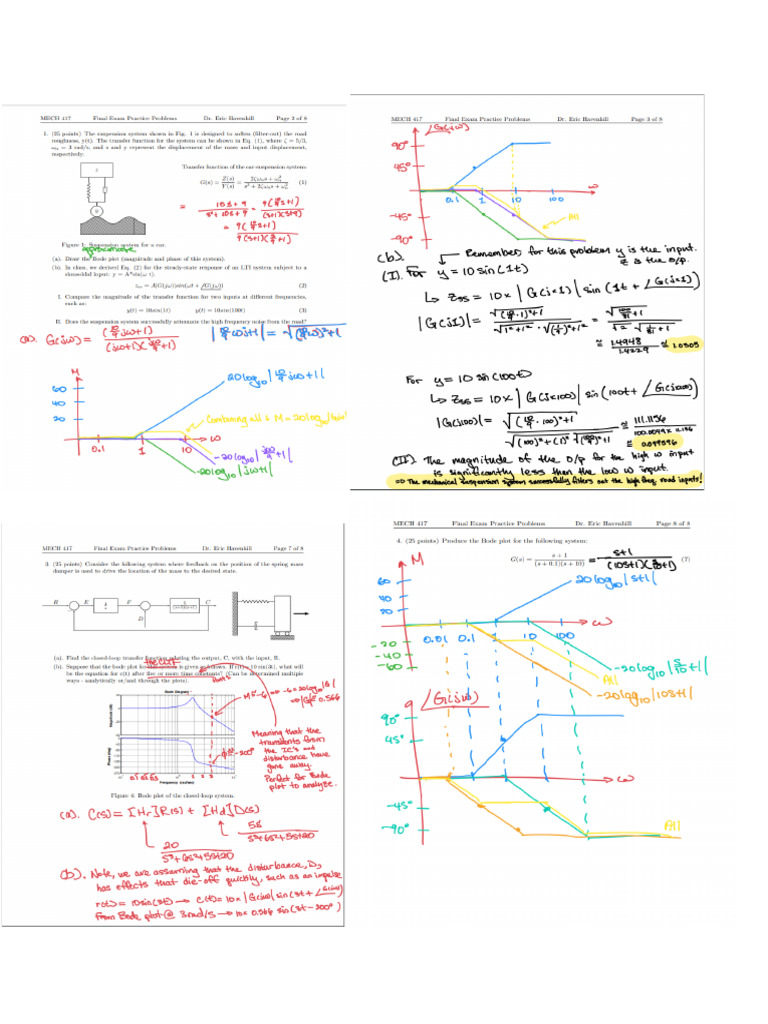 MECH 417 Final Exam Practice Problems Dr. Eric Havenhill Page 2 of 8
1. (25 points) The suspension system shown in Fig. 1 is designed to soften (filter-out) the road
roughness, y(t). The transfer function for the system can be shown in Eq. (1), where ζ = 5/3,
ωn = 3 rad/s, and z and y represent the displacement of the mass and input displacement,
respectively.
Transfer function of the car-suspension system:
G(s) = Z(s)/Y(s) = (2ζωns + ωn²)/(s² + 2ζωns + ωn²) (1)
= (10s+9)/(s²+10s+9) = 9(10/9 s+1)/((s+1)(s+9))
= 9(10/9 s+1)/(9(s+1)(s/9+1))
Figure 1: Suspension system for a car.
(a). Draw the Bode plot (magnitude and phase of this system).
(b). In class, we derived Eq. (2) for the steady-state response of an LTI system subject to a
sinusoidal input: y = A*sin(ω t).
zss = A|G(jω)|sin(ωt + ∠G(jω)) (2)
I. Compare the magnitude of the transfer function for two inputs at different frequencies,
such as:
y(t) = 10sin(1t) y(t) = 10sin(100t) (3)
II. Does the suspension system successfully attenuate the high frequency noise from the road?
(a). G(jω) = (10/9 jω+1)/((jω+1)(jω/9+1)) |10/9 ωj+1| = √((10/9 ω)²+1)
M
60
40
20
0.1 1 10 ω
20log10|10/9 jω+1|
Combining all: M = 20log10|G(jω)|
-20log10|jω/9+1|
-20log10|jω+1|
MECH 417 Final Exam Practice Problems Dr. Eric Havenhill Page 3 of 8
∠G(jω)
90°
45°
-45°
-90°
0.1 1 10 100 ω
All
(b). Remember for this problem y is the input.
z is the o/p.
(I). For y = 10 sin(1t)
↳ Zss = 10x |G(j×1)| sin(1t + ∠G(jω))
|G(j1)| = √((10/9·1)²+1)/(√(1²+1²)·√((1/9)²+1²)) = √(100/81+1)/(√2 √(1/81+1))
≅ 1.4948/1.4229 ≅ 1.0505
For y = 10 sin(100t)
↳ Zss = 10x |G(j×100)| sin(100t + ∠G(j100))
|G(j100)| = √((10/9·100)²+1)/(√((100)²+(1)²) √((100/9)²+1)) ≅ 111.1156/(100.0049×11.156)
≅ 0.099596
(II). The magnitude of the o/p for the high ω input
is significantly less than the low ω input.
⇒ The mechanical suspension system successfully filters out the high freq. road inputs!
MECH 417 Final Exam Practice Problems Dr. Eric Havenhill Page 7 of 8
3. (25 points) Consider the following system where feedback on the position of the spring mass
damper is used to drive the location of the mass to the desired state.
R E F C
D
(a). Find the closed-loop transfer function relating the output, C, with the input, R.
(b). Suppose that the bode plot for this system is given as follows. If r(t) = 10 sin(3t), what will
be the equation for c(t) after five or more time constants? (Can be determined multiple
ways - analytically or/and through the plots).
Bode Diagram
Magnitude (dB)
Phase (deg)
Frequency (rad/s)
M≅-6 ⇒ -6=20log10|G|
⇒ |G|≅0.566
φ≅-200°
Meaning that the
transients from
the IC's and
disturbance have
gone away.
Perfect for Bode
plot to analyze.
Figure 4: Bode plot of the closed-loop system.
(a). C(s) = [Hr]R(s) + [Hd]D(s)
20/(s³+6s²+5s+20)
5s/(s³+6s²+5s+20)
(b). Note, we are assuming that the disturbance, D,
has effects that die-off quickly, such as an impulse
r(t) = 10sin(3t) → c(t) = 10x |G(jω)| sin(3t + ∠G(jω))
From Bode plot @ 3rad/s → 10x 0.566 sin(3t-200°)
MECH 417 Final Exam Practice Problems Dr. Eric Havenhill Page 8 of 8
4. (25 points) Produce the Bode plot for the following system:
G(s) = (s + 1)/((s + 0.1)(s + 10)) = (s+1)/((10s+1)(s/10+1)) (7)
M
60
40
20
-20
-40
-60
0.01 0.1 1 10 100 ω
20log10|s+1|
-20log10|s/10+1|
All
-20log10|10s+1|
∠G(jω)
90°
45°
-45°
-90°
ω
All